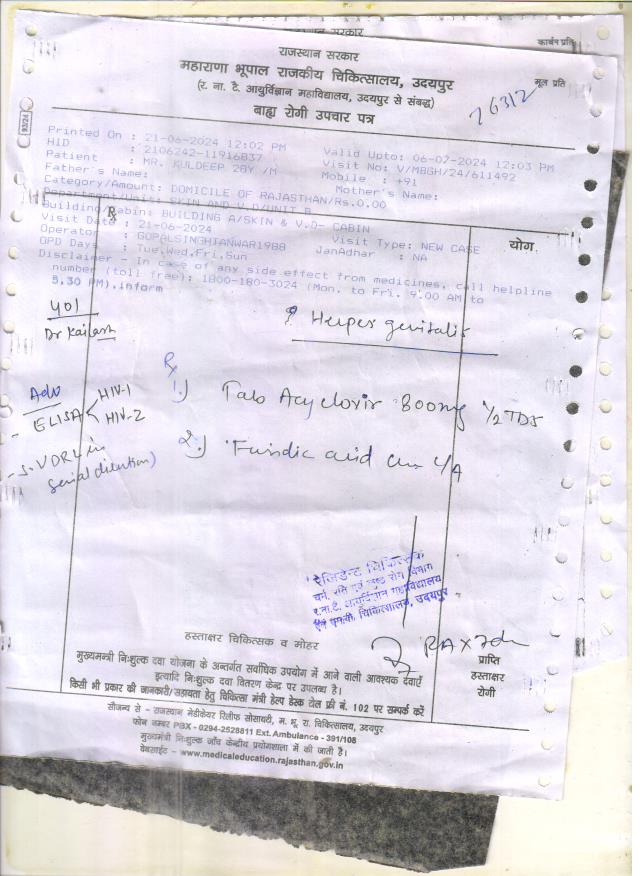 राजस्थान सरकार
कार्बन प्रति
राजस्थान सरकार
महाराणा भूपाल राजकीय चिकित्सालय, उदयपुर
मूल प्रति
(र. ना. टै. आयुर्विज्ञान महाविद्यालय, उदयपुर से संबद्ध)
बाह्य रोगी उपचार पत्र
26312
93/24
Printed On : 21-06-2024 12:02 PM
Valid Upto: 06-07-2024 12:03 PM
HID : 2106242-11916837
Visit No: V/MBGH/24/611492
Patient : MR. KULDEEP 28Y /M
Mobile : +91
Father's Name:
Mother's Name:
Category/Amount: DOMICILE OF RAJASTHAN/Rs.0.00
Department/Unit: SKIN AND V.D/UNIT B
Building/Cabin: BUILDING A/SKIN & V.D- CABIN
Visit Date : 21-06-2024
Visit Type: NEW CASE
Operator : GOPALSINGHTANWAR1988
JanAadhar : NA
OPD Days : Tue,Wed,Fri,Sun
Disclaimer - In case of any side effect from medicines, call helpline
number (toll free): 1800-180-3024 (Mon. to Fri. 9.00 AM to
5.30 PM).inform
Rx
योग
401
Dr Kailash
? Herpes genitalis
Rx
1.) Tab Acyclovir 800mg 1/2 TDS
Adv
- ELISA
HIV-1
HIV-2
2.) Fusidic acid cm L/A
- S. VDRL in
serial dilution)
रेजिडेन्ट चिकित्सक
चर्म, रति एवं कुष्ठ रोग विभाग
र.ना.टै. आयुर्विज्ञान महाविद्यालय
एवं एम.बी. चिकित्सालय, उदयपुर
RAX7d
हस्ताक्षर चिकित्सक व मोहर
प्राप्ति
हस्ताक्षर
रोगी
मुख्यमन्त्री निःशुल्क दवा योजना के अन्तर्गत सर्वाधिक उपयोग में आने वाली आवश्यक दवाऐं
इत्यादि निःशुल्क दवा वितरण केन्द्र पर उपलब्ध है।
किसी भी प्रकार की जानकारी/सहायता हेतु चिकित्सा मंत्री हेल्प डेस्क टोल फ्री नं. 102 पर सम्पर्क करें
सौजन्य से - राजस्थान मेडीकेयर रिलीफ सोसायटी, म. भू. रा. चिकित्सालय, उदयपुर
फोन नम्बर PBX - 0294-2528811 Ext. Ambulance - 391/108
मुख्यमंत्री निःशुल्क जाँच केन्द्रीय प्रयोगशाला में की जाती है।
वेबसाईट – www.medicaleducation.rajasthan.gov.in